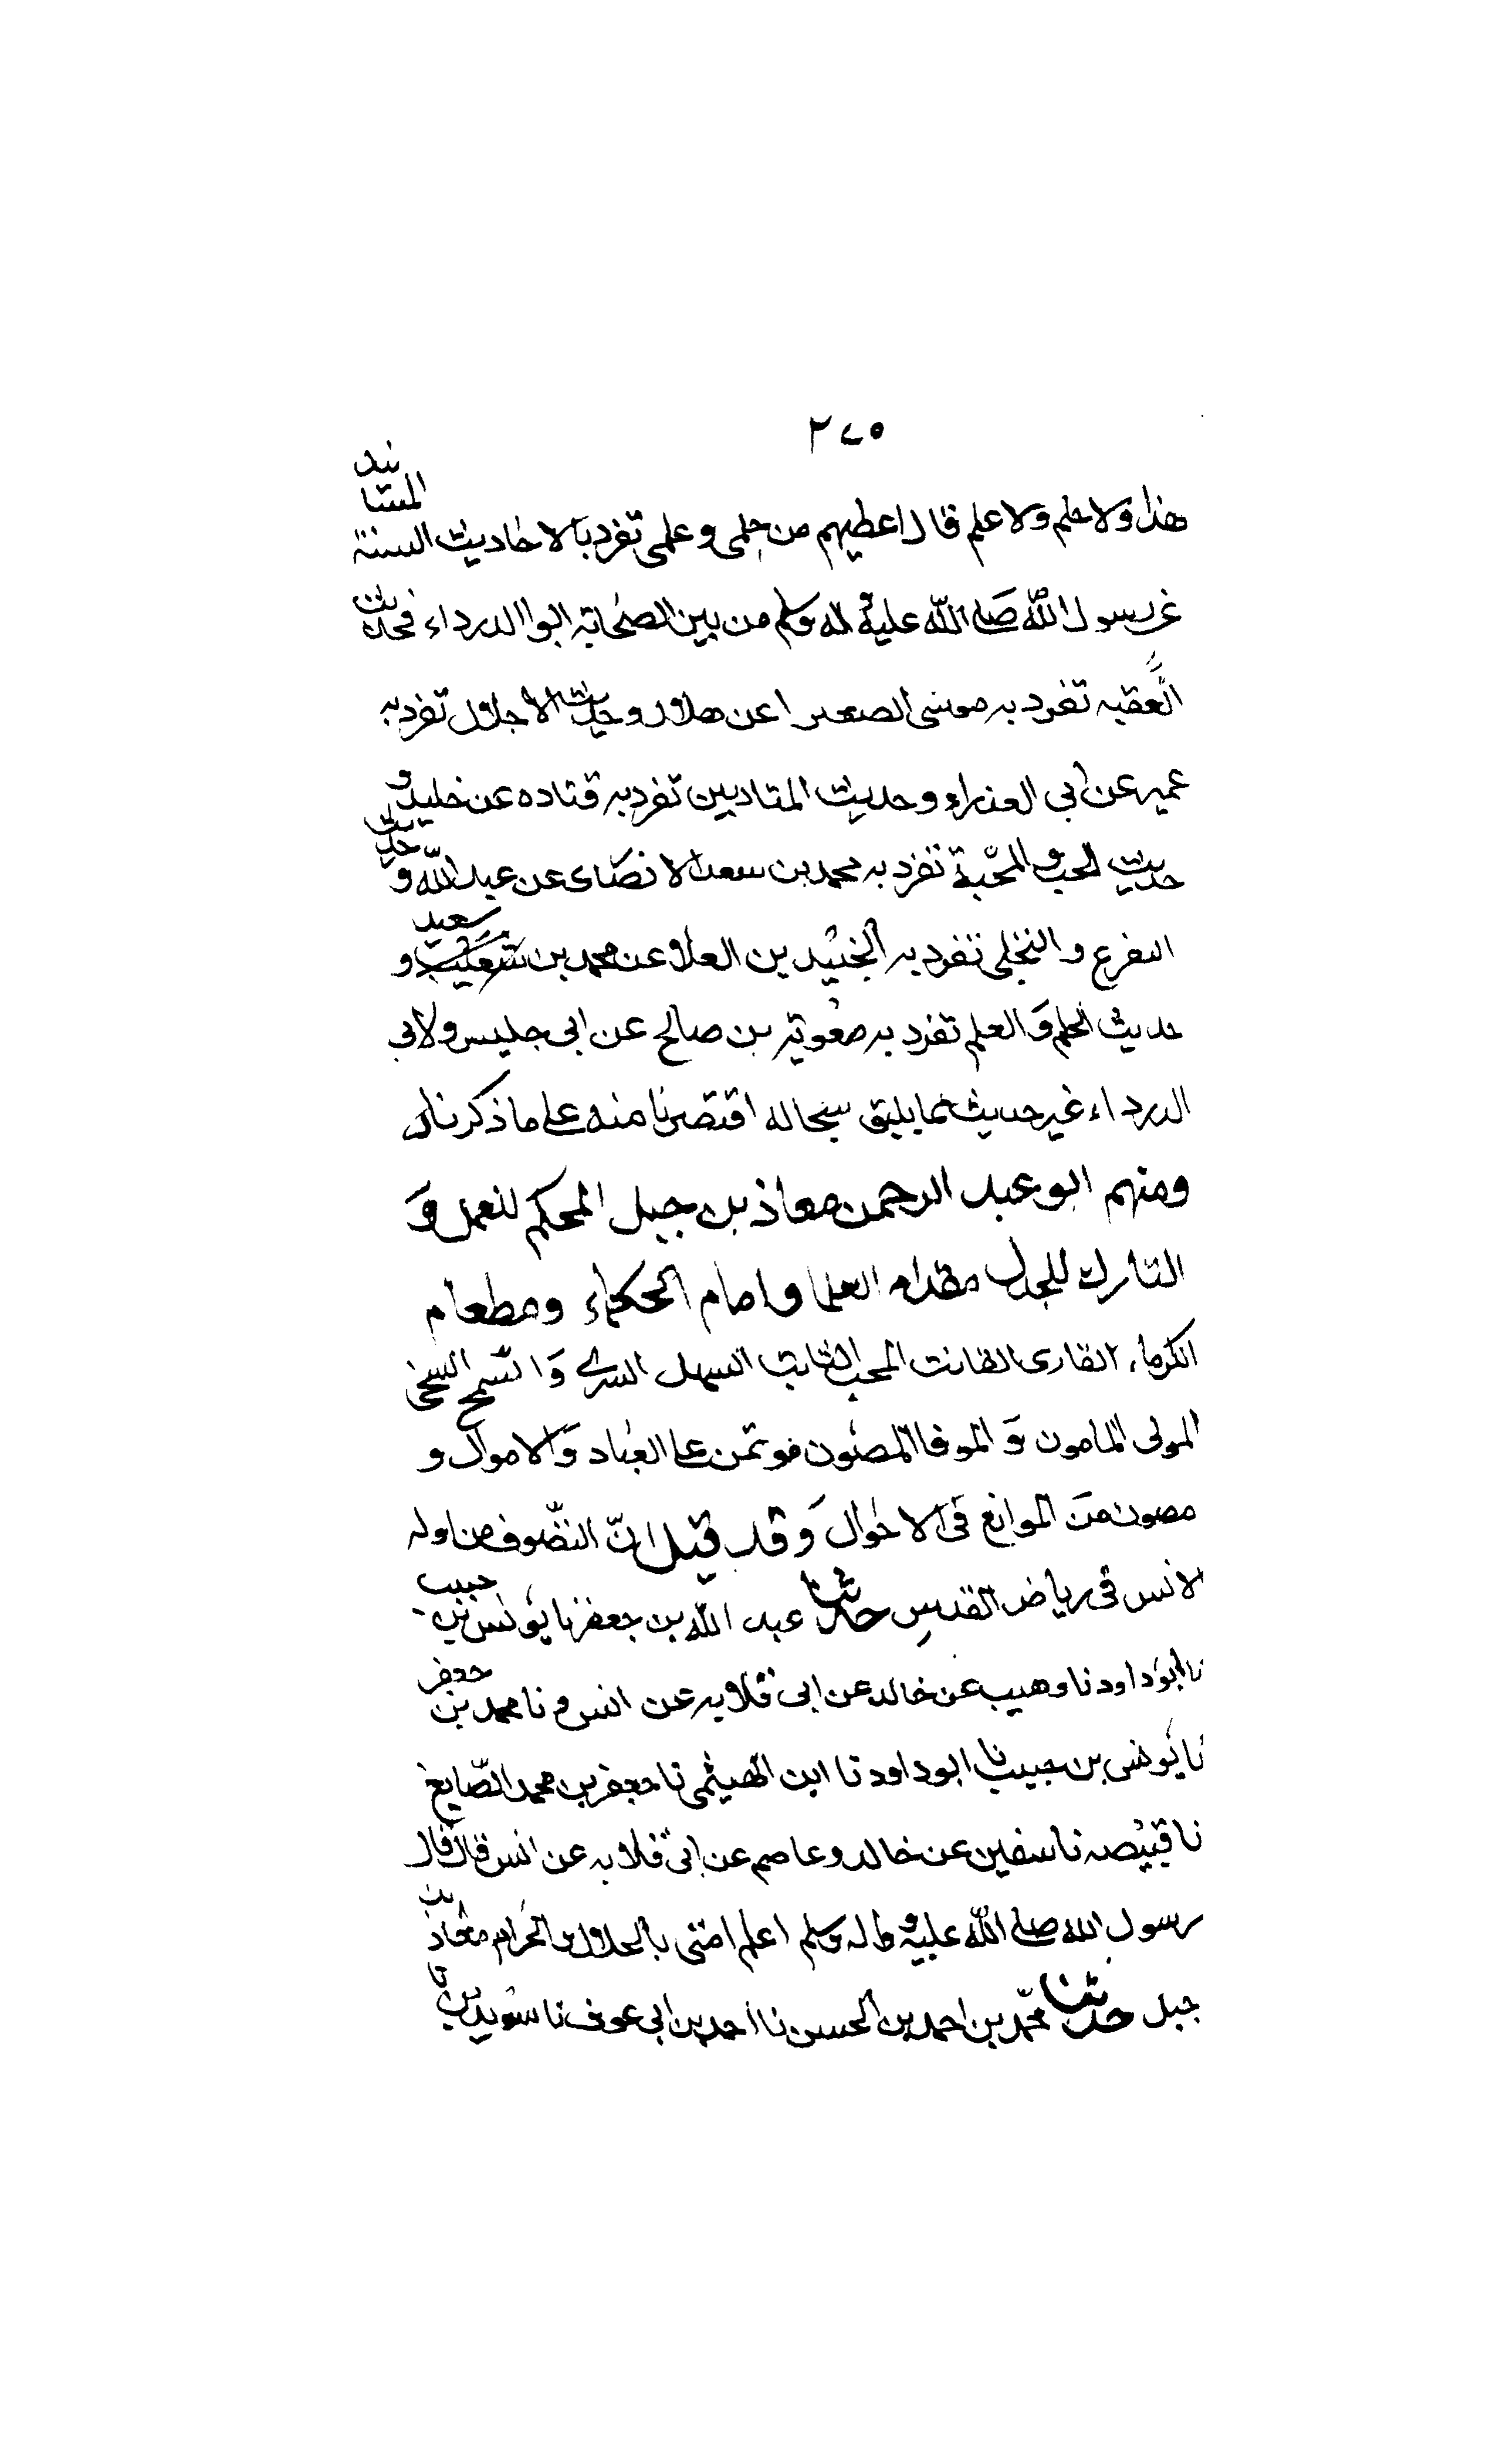 ٢٧٥
هذا ولا حلم ولا علم قال اعطيهم من حلمى وعلمى تفرد بالاحاديث الستة المسانيد
عن رسول الله صلى الله عليه واله وسلم من بين الصحابة ابو الدرداء فحديث
العقبه تفرد به موسى الصغير عن هلال وحديث الاجلال تفرد به
عمير عن ابى العذراء وحديث المناديين تفرد به قتاده عن خليد و
حديث الحب والمحبة تفرد به محمد بن سعد الانصارى عن عبد الله وحديث
التفرغ والتخلى تفرد به الجنيد بن العلا عن محمد بن سعيد و
حديث الحلم والعلم تفرد به معوية بن صالح عن ابى حليس ولابى
الدرداء غير حديث مما يليق بحاله اقتصرنا منه على ما ذكرناه
ومنهم ابو عبد الرحمن معاذ بن جبل المحكم للعمل و
التارك للجدل مقدام العلما وامام الحكماء ومطعام
الكرماء القارى القانت المحب الثابت السهل السرى والسمح السخى
المولى المامون والموفا المصون موتمن على العباد والاموال و
مصون من الموانع فى الاحوال وقد قيل ان التصوف مناوله
الانس فى رياض القدس حدثنا عبد الله بن جعفر نا يونس بن حبيب
نا ابو داود نا وهيب عن خالد عن ابى قلابه عن انس ونا محمد بن جعفر
نا يونس بن حبيب نا ابو داود نا ابن الهيثمى نا جعفر بن محمد الصايغ
نا قبيصه نا سفين عن خالد وعاصم عن ابى قلابه عن انس قال قال
رسول الله صلى الله عليه واله وسلم اعلم امتى بالحلال والحرام معاذ بن
جبل حدثنا محمد بن احمد بن الحسن نا احمد بن ابى عوف نا سويد نا